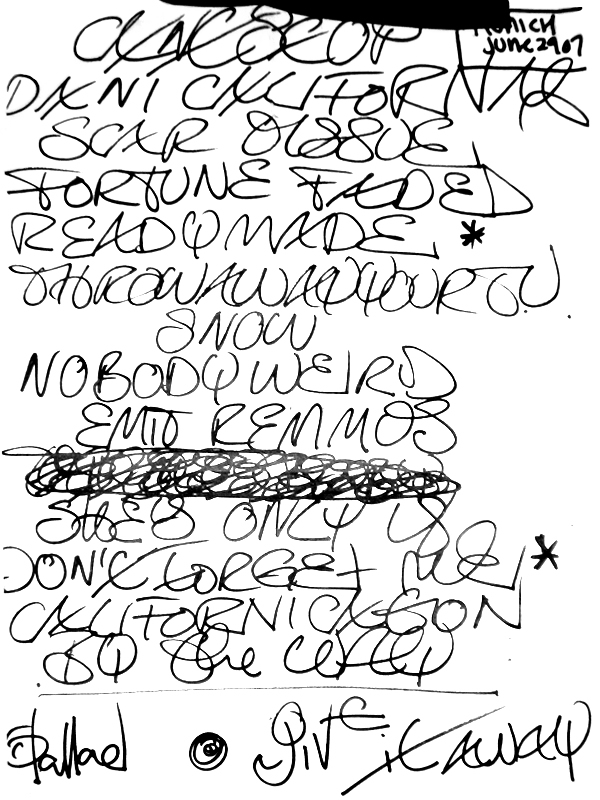 MUNICH
JUNE 29 07
CANT STOP
DANI CALIFORNIA
SCAR TISSUE
FORTUNE FADED
READYMADE *
THROW AWAY YOUR TV.
SNOW
NOBODY WEIRD
EMIT REMMUS
SHE'S ONLY 18
DON'T FORGET ME *
CALIFORNICATION
BY The WAY
Ballad GIVE it AWAY